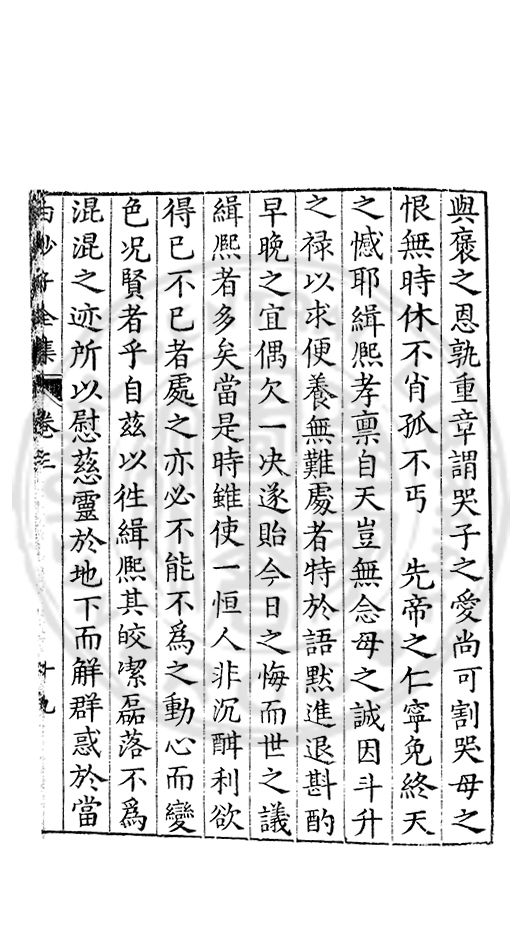 與褒之恩孰重章謂哭子之愛尚可割哭母之
恨無時休不肖孤不丐　先帝之仁寧免終天
之憾耶緝熈孝禀自天豈無念母之誠因斗升
之禄以求便養無難處者特於語默進退斟酌
早晚之宜偶欠一决遂貽今日之悔而世之議
緝熈者多矣當是時雖使一恒人非沉酣利欲
得已不已者處之亦必不能不爲之動心而變
色况賢者乎自兹以徃緝熈其皎潔磊落不爲
混混之迹所以慰慈靈於地下而解群惑於當
白沙子全集　卷之三　十九